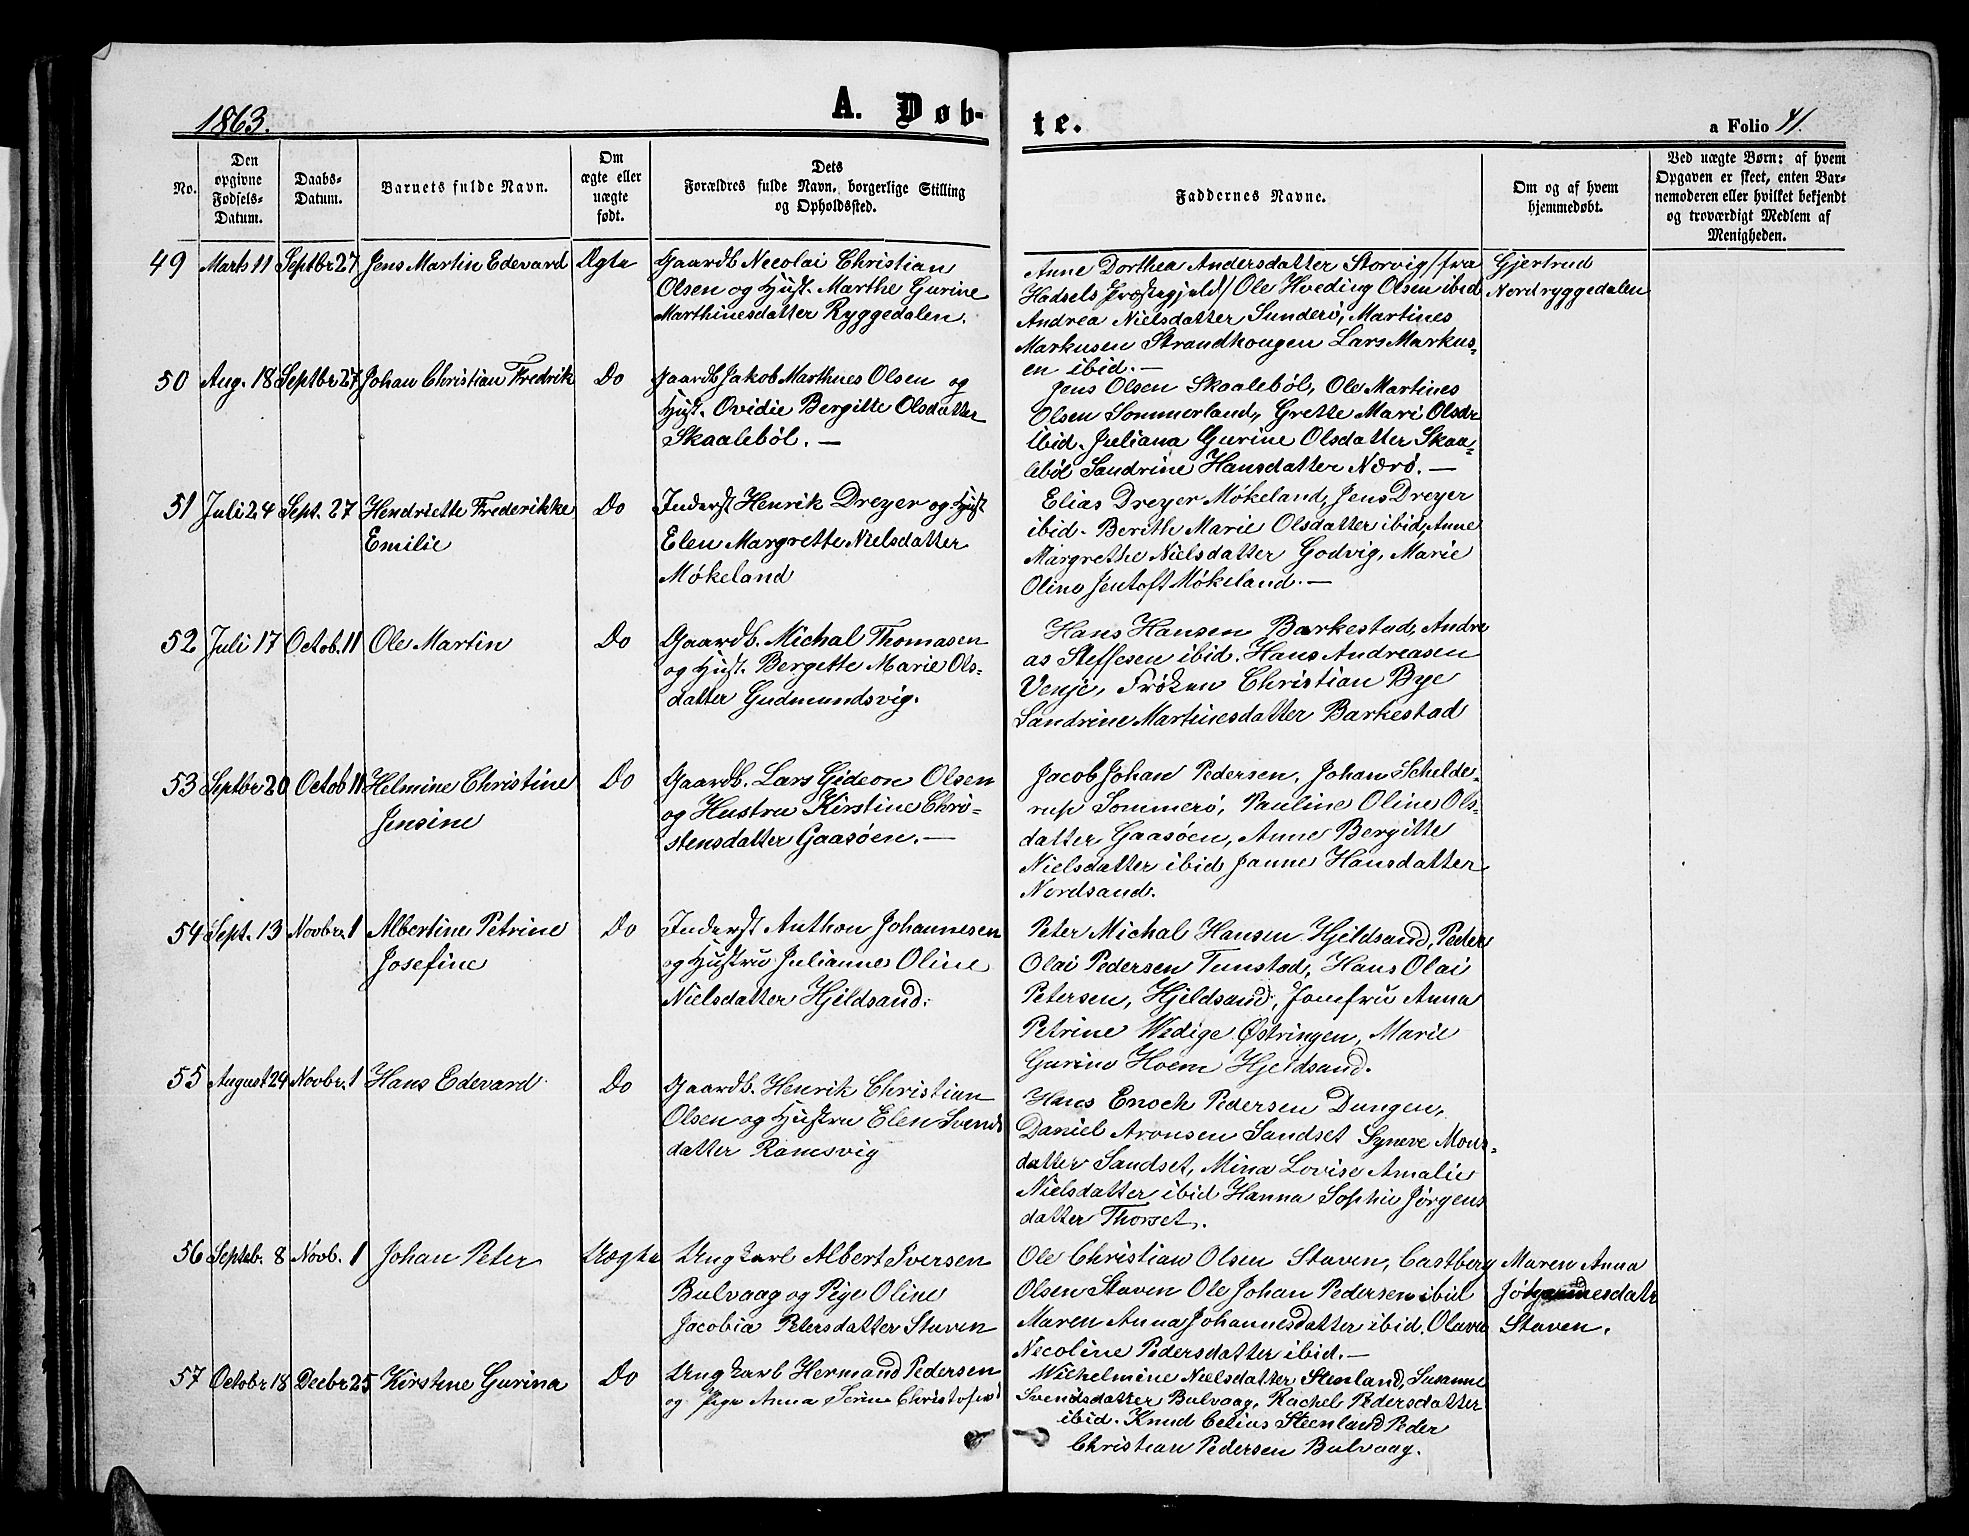 1863.
A. Døb-
te.
a Folio 41.
No.
Den
opgivne
Fødsels-
Datum.
Daabs-
Datum.
Barnets fulde Navn.
Om
ægte eller
uægte
født.
Dets
Forældres fulde Navn, borgerlige Stilling
og Opholdssted.
Faddernes Navne.
Om og af hvem
hjemmedøbt.
Ved uægte Børn: af hvem
Opgaven er skeet, enten Bar-
nemoderen eller hvilket bekjendt
og troværdigt Medlem af
Menigheden.
49 Marts 11 Septbr 27 Jens Martin Edevard Ægte
Gaardb Necolai Christian
Olsen og Hust. Marthe Gurine
Marthinesdatter Ryggedalen.
Anne Dorthea Andersdatter Storvig/fra
Hadsels Præstegjeld/Ole Hveding Olsen ibid
Andrea Nielsdatter Sunderø, Martines
Markusen Strandhougen Lars Markus-
en ibid.—
Gjertrud
Nordryggedalen
50 Aug. 18 Septbr 27 Johan Christian Fredrik Do
Gaardb Jakob Marthnes Olsen og
Hust. Ovidie Bergitte Olsdatter
Skaalebøl.—
Jens Olsen Skaalebøl, Ole Martines
Olsen Sommerland, Grette Mari Olsdr
ibid. Juliana Gurine Olsdatter Skaa-
lebøl Sandrine Hansdatter Nærø.—
51 Juli 24 Sept. 27 Hendriette Frederikke Do
Emilie
Inderst Henrik Dreyer og Hust
Elen Margrette Nielsdatter
Møkeland
Elias Dreyer Møkeland, Jens Dreyer
ibid. Berith Marie Olsdatter ibid, Anne
Margrethe Nielsdatter Godvig, Marie
Olino Jentoft Møkeland.—
52 Juli 17 Octob. 11 Ole Martin Do
Gaardb. Michal Thomasen
og Hust. Bergette Marie Ols-
datter Gudmundsvig.
Hans Hansen Barkestad, Andre
as Steffesen ibid. Hans Andreasen
Venje, Frøken Christian Bye
Sandrine Martinesdatter Barkestad
53 Septbr 20 Octob 11 Helmine Christine Do
Jensine
Gaardb. Lars Gideon Olsen
og Hustru Kirstine Chri-
stensdatter Gaasøen.—
Jacob Johan Pedersen, Johan Schelde-
rup Sommerø, Pauline Oline Ols-
datter Gaasøen, Anne Bergitte
Nielsdatter ibid Janne Hansdatter
Nordsand.
54 Sept. 13 Novbr. 1 Albertine Petrine Do
Josefine
Inderst Anthon Johannesen
og Hustru Julianne Oline
Nielsdatter Hjeldsand.
Peter Michal Hansen Hjeldsand, Peder
Olai Pedersen Tunstad, Hans Olai
Petersen, Hjeldsand, Jomfru Anna
Petrine Wedige Østringen, Marie
Gurine Hoem Hjeldsand.
55 August 24 Novbr. 1 Hans Edevard Do
Gaardb. Henrik Christian
Olsen og Hustru Elen Svends
datter Ramsvig
Hans Enoch Pedersen Dungen,
Daniel Aronsen Sandset Syneve Mons-
datter Sandset, Mina Lovise Amalie
Nielsdatter ibid Hanna Sophie Jørgens
datter Thorset.
56 Septeb. 8 Novb. 1 Johan Peter Uægte
Ungkarl Albert Iversen
Bulvaag og Pige Oline
Jacobia Petersdatter Staven
Ole Christian Olsen Staven, Castberg
Olsen Staven Ole Johan Pedersen ibid
Maren Anna Johannesdatter ibid. Olava
Necoline Pedersdatter ibid.—
Maren Anna
Staven.
57 Octobr 18 Decbr 25 Kirstene Gurina Do
Ungkarl Hermand Pedersen
og Pige Anna Serine Christofersd
Wichelmine Nielsdatter Stenland, Susanne
Svendsdatter Bulvaag, Rachel Pedersdatter
ibid. Knud Celius Steenland Peder
Christian Pedersen Bulvaag.